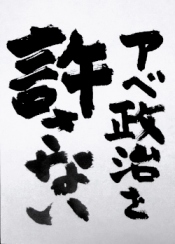 アベ政治を
許さない